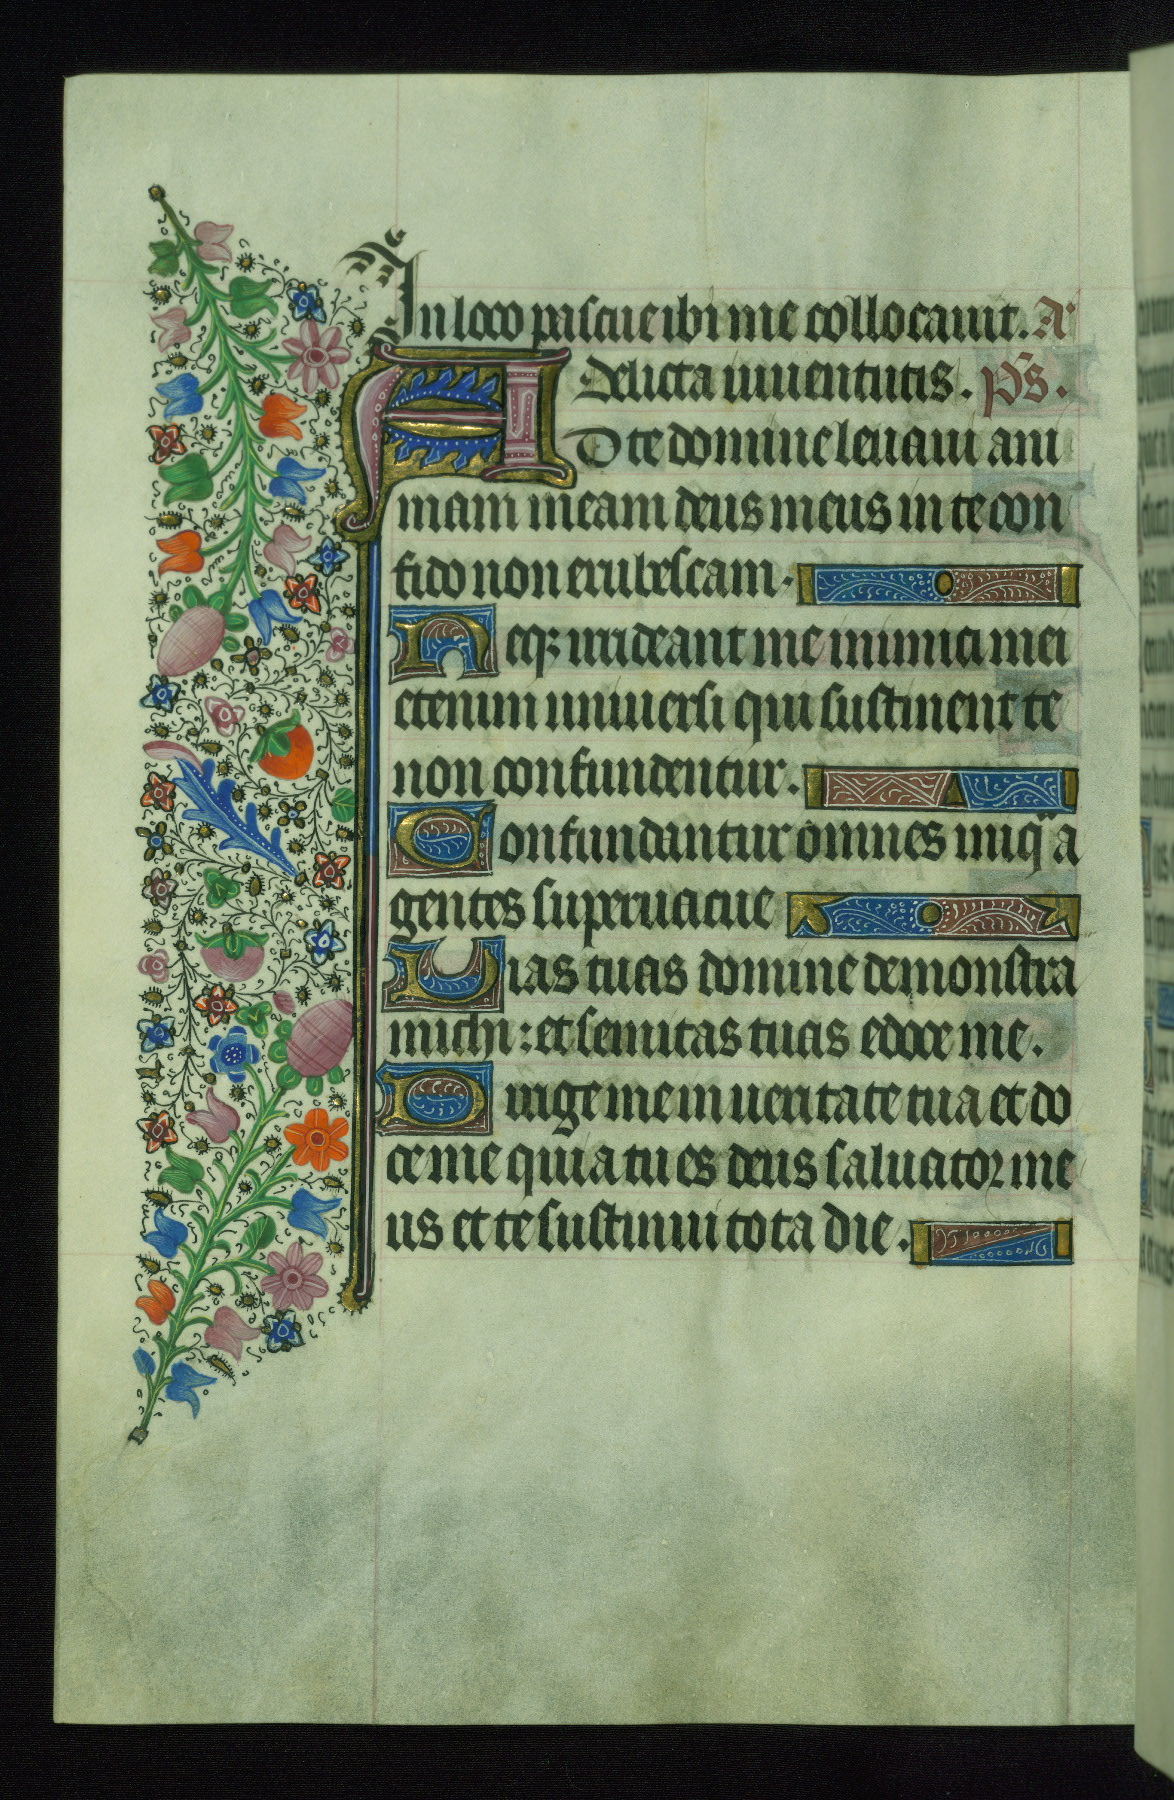 In loco pascue ibi me collocauit. A'
Delicta iuuentutis. ps̄.
AD te domine leuaui ani
mam meam deus meus in te con
fido non erubescam.
Neqꝫ irrideant me inimici mei
etenim uniuersi qui sustinent te
non confundentur.
Confundantur omnes iniqᵃ a
gentes superuacue
Uias tuas domine demonstra
michi : et semitas tuas edoce me.
Dirige me in ueritate tua et do
ce me quia tu es deus saluator me
us et te sustinui tota die.